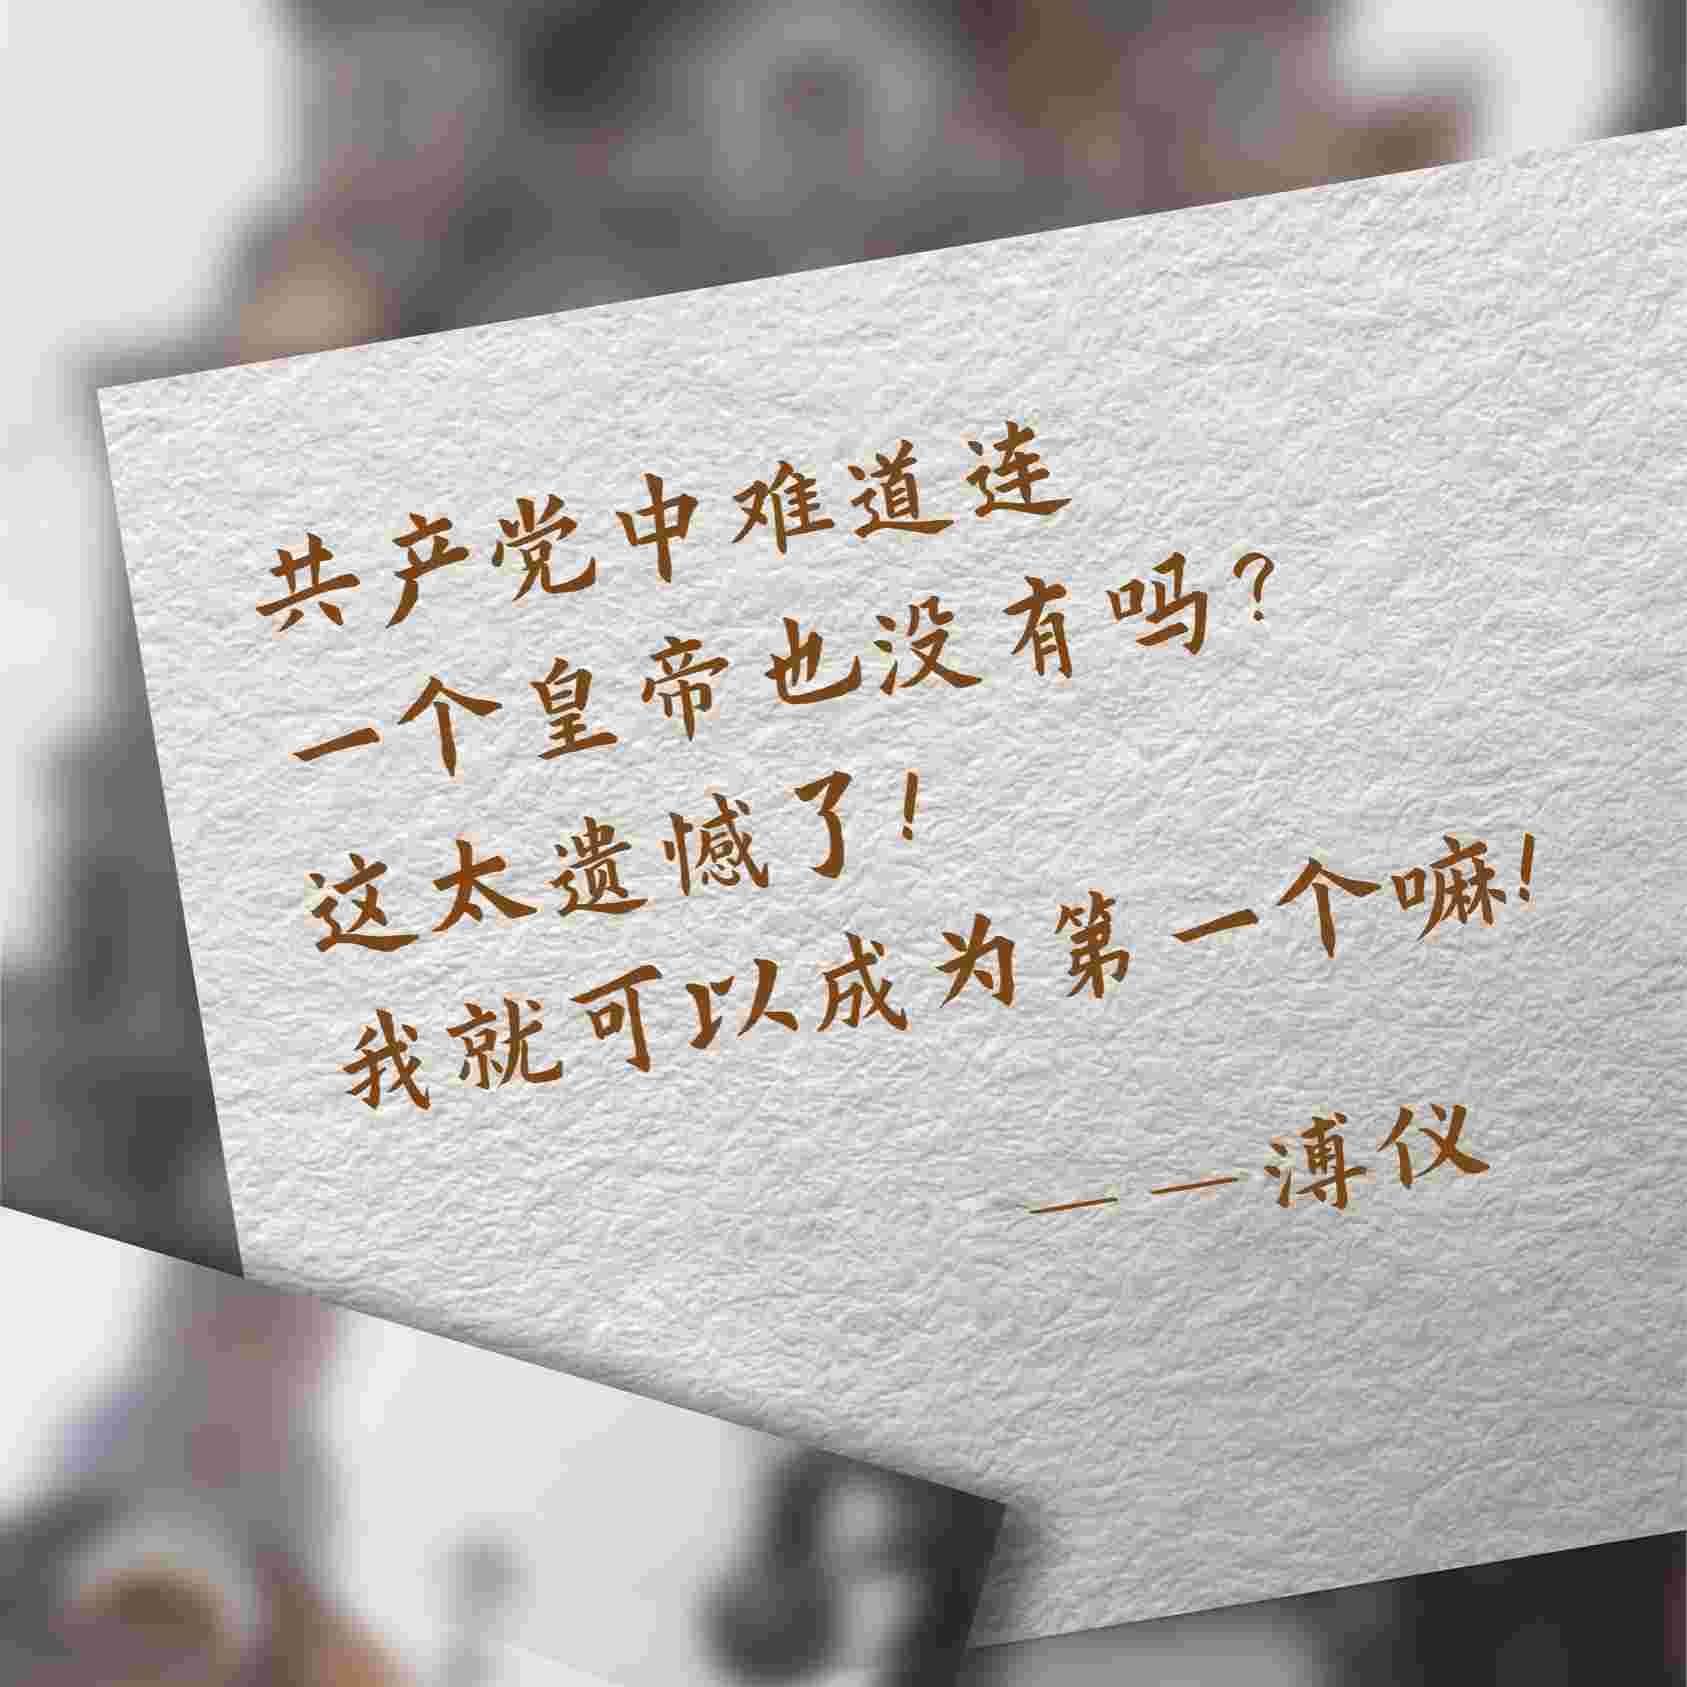 共产党中难道连
一个皇帝也没有吗？
这太遗憾了！
我就可以成为第一个嘛！
——溥仪